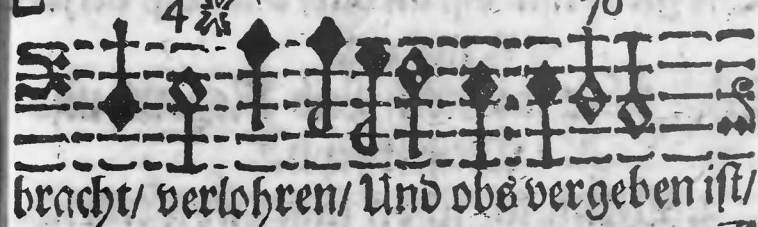 4 76
bracht/ verlohren/ Und obs vergeben ist/